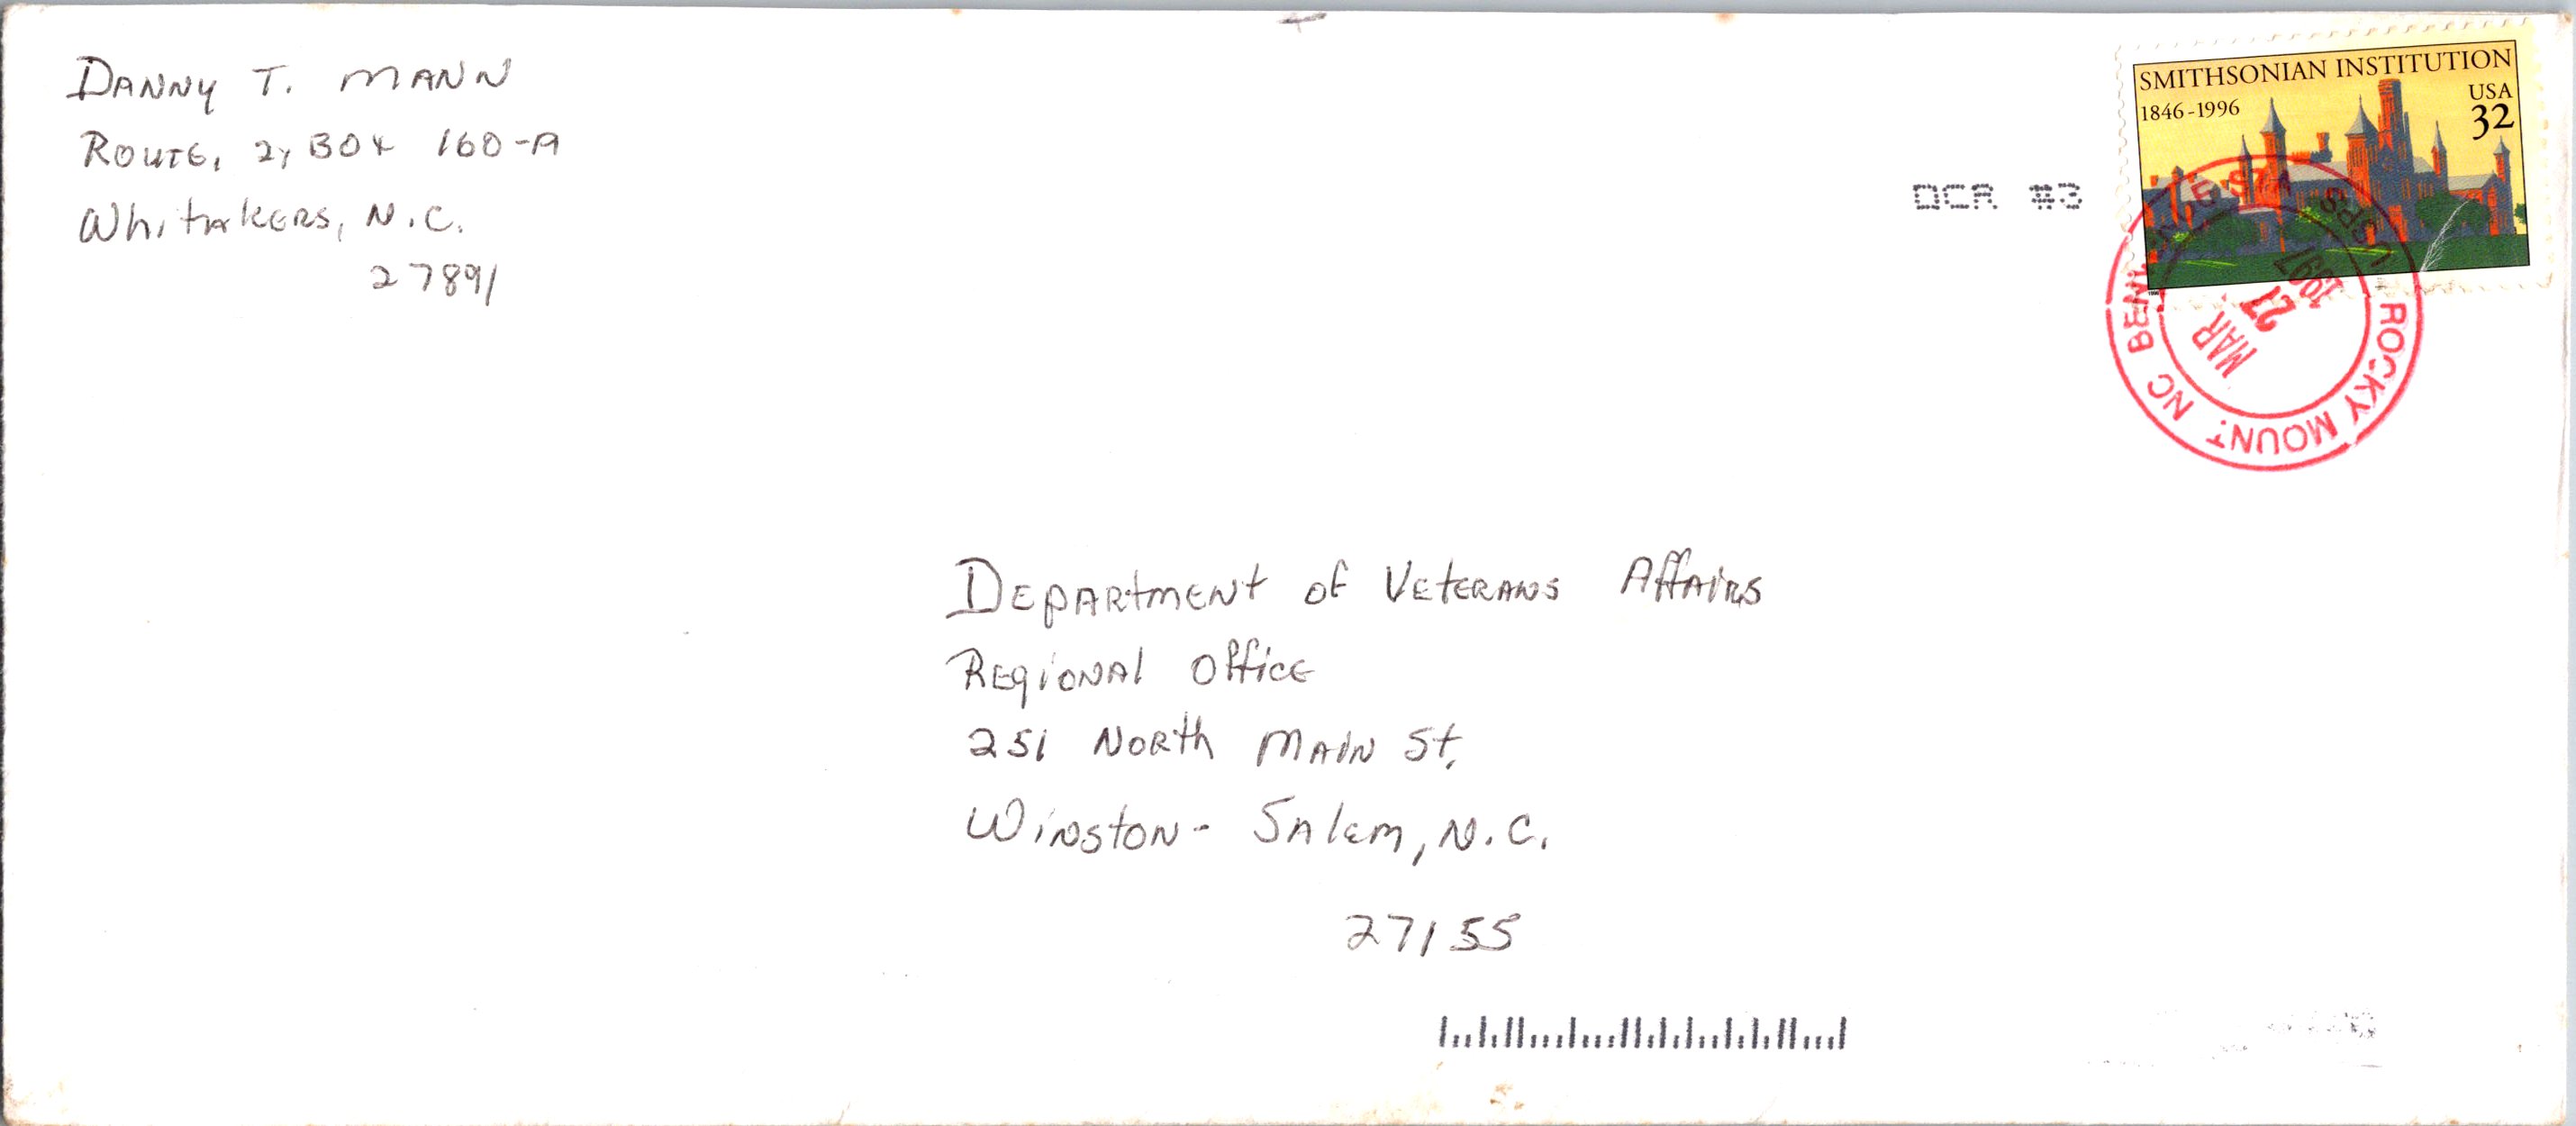 DANNY T. MANN
ROUTE, 2, BOX 160-A
Whitakers, N.C.
27891
OCR #3
SMITHSONIAN INSTITUTION
1846-1996
USA
32
USPS ROCKY MOUNT NC STA
MAR 27 1997
Department of Veterans Affairs
Regional Office
251 North Main St.
Winston- Salem, N.C.
27155